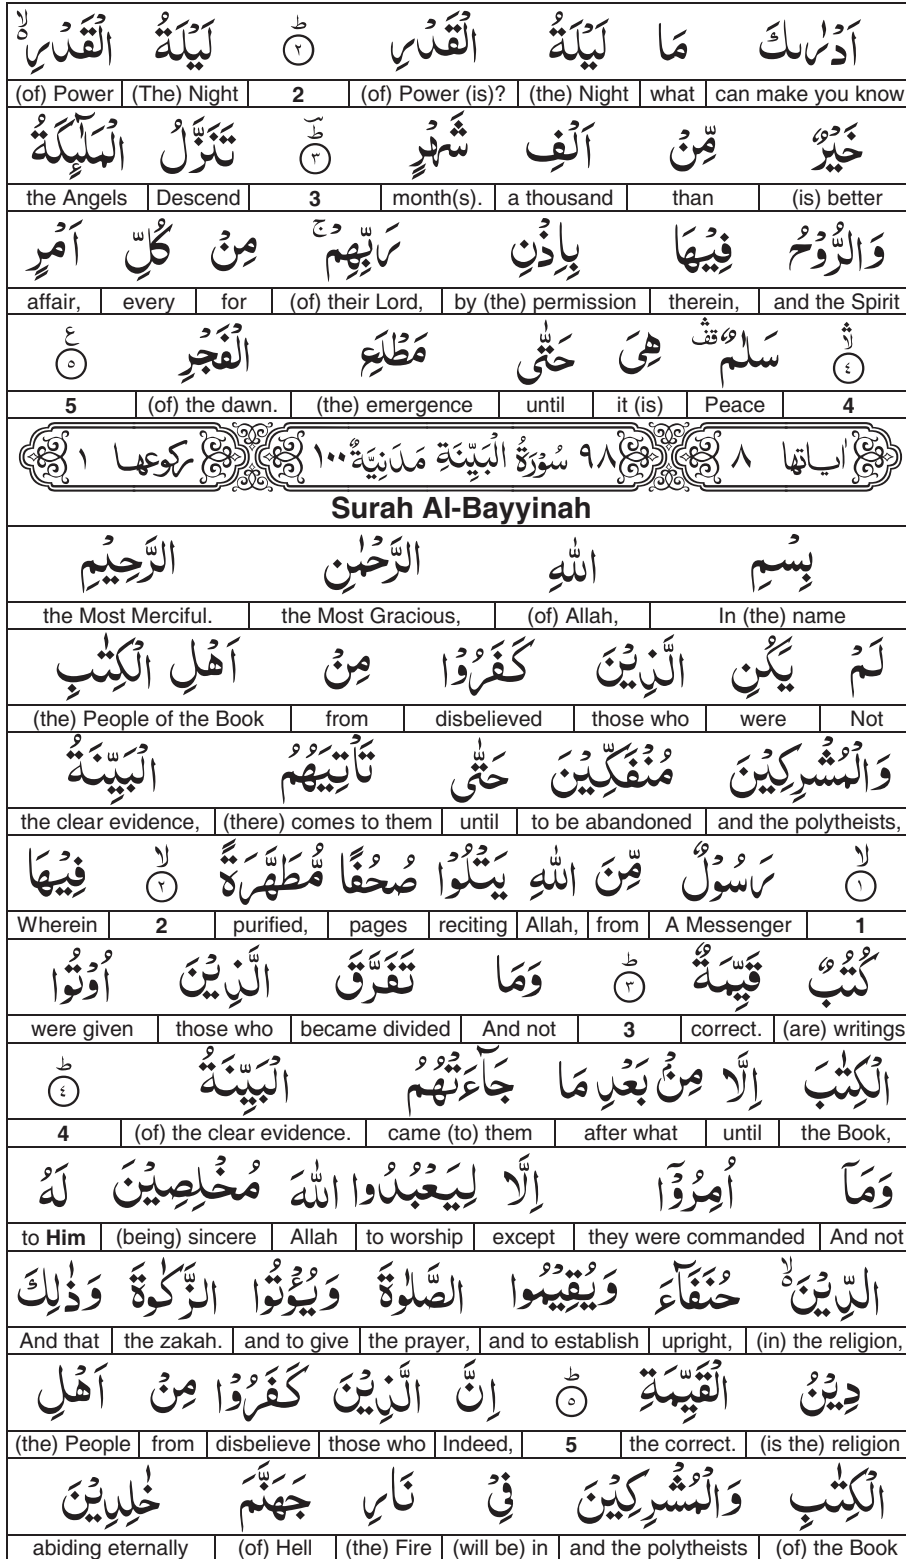 اَدْرٰىكَ مَا لَيْلَةُ الْقَدْرِ ؕ ٢ لَيْلَةُ الْقَدْرِ ۙ۬
can make you know | what | (the) Night | (of) Power (is)? | 2 | (The) Night | (of) Power
خَيْرٌ مِّنْ اَلْفِ شَهْرٍ ؕؔ ٣ تَنَزَّلُ الْمَلٰٓئِكَةُ
(is) better | than | a thousand | month(s). | 3 | Descend | the Angels
وَالرُّوْحُ فِيْهَا بِاِذْنِ رَبِّهِمْ ۚ مِنْ كُلِّ اَمْرٍ
and the Spirit | therein, | by (the) permission | (of) their Lord, | for | every | affair,
ۙۛ ٤ سَلٰمٌ ۛ قف هِيَ حَتّٰى مَطْلَعِ الْفَجْرِ ع ٥
4 | Peace | it (is) | until | (the) emergence | (of) the dawn. | 5
اٰیاتها ٨ ٩٨ سُوْرَةُ الْبَيِّنَةِ مَدَنِيَّةٌ ١٠٠ ركوعها ١
Surah Al-Bayyinah
بِسْمِ اللّٰهِ الرَّحْمٰنِ الرَّحِيْمِ
In (the) name | (of) Allah, | the Most Gracious, | the Most Merciful.
لَمْ يَكُنِ الَّذِيْنَ كَفَرُوْا مِنْ اَهْلِ الْكِتٰبِ
Not | were | those who | disbelieved | from | (the) People of the Book
وَالْمُشْرِكِيْنَ مُنْفَكِّيْنَ حَتّٰى تَاْتِيَهُمُ الْبَيِّنَةُ
and the polytheists, | to be abandoned | until | (there) comes to them | the clear evidence,
ۙ ١ رَسُوْلٌ مِّنَ اللّٰهِ يَتْلُوْا صُحُفًا مُّطَهَّرَةً ۙ ٢ فِيْهَا
1 | A Messenger | from | Allah, | reciting | pages | purified, | 2 | Wherein
كُتُبٌ قَيِّمَةٌ ؕ ٣ وَمَا تَفَرَّقَ الَّذِيْنَ اُوْتُوا
(are) writings | correct. | 3 | And not | became divided | those who | were given
الْكِتٰبَ اِلَّا مِنْۢ بَعْدِ مَا جَآءَتْهُمُ الْبَيِّنَةُ ؕ ٤
the Book, | until | after what | came (to) them | (of) the clear evidence. | 4
وَمَآ اُمِرُوْۤا اِلَّا لِيَعْبُدُوا اللّٰهَ مُخْلِصِيْنَ لَهُ
And not | they were commanded | except | to worship | Allah | (being) sincere | to Him
الدِّيْنَ ۙ۬ حُنَفَآءَ وَيُقِيْمُوا الصَّلٰوةَ وَيُؤْتُوا الزَّكٰوةَ وَذٰلِكَ
(in) the religion, | upright, | and to establish | the prayer, | and to give | the zakah. | And that
دِيْنُ الْقَيِّمَةِ ؕ ٥ اِنَّ الَّذِيْنَ كَفَرُوْا مِنْ اَهْلِ
(is the) religion | the correct. | 5 | Indeed, | those who | disbelieve | from | (the) People
الْكِتٰبِ وَالْمُشْرِكِيْنَ فِيْ نَارِ جَهَنَّمَ خٰلِدِيْنَ
(of) the Book | and the polytheists | (will be) in | (the) Fire | (of) Hell | abiding eternally